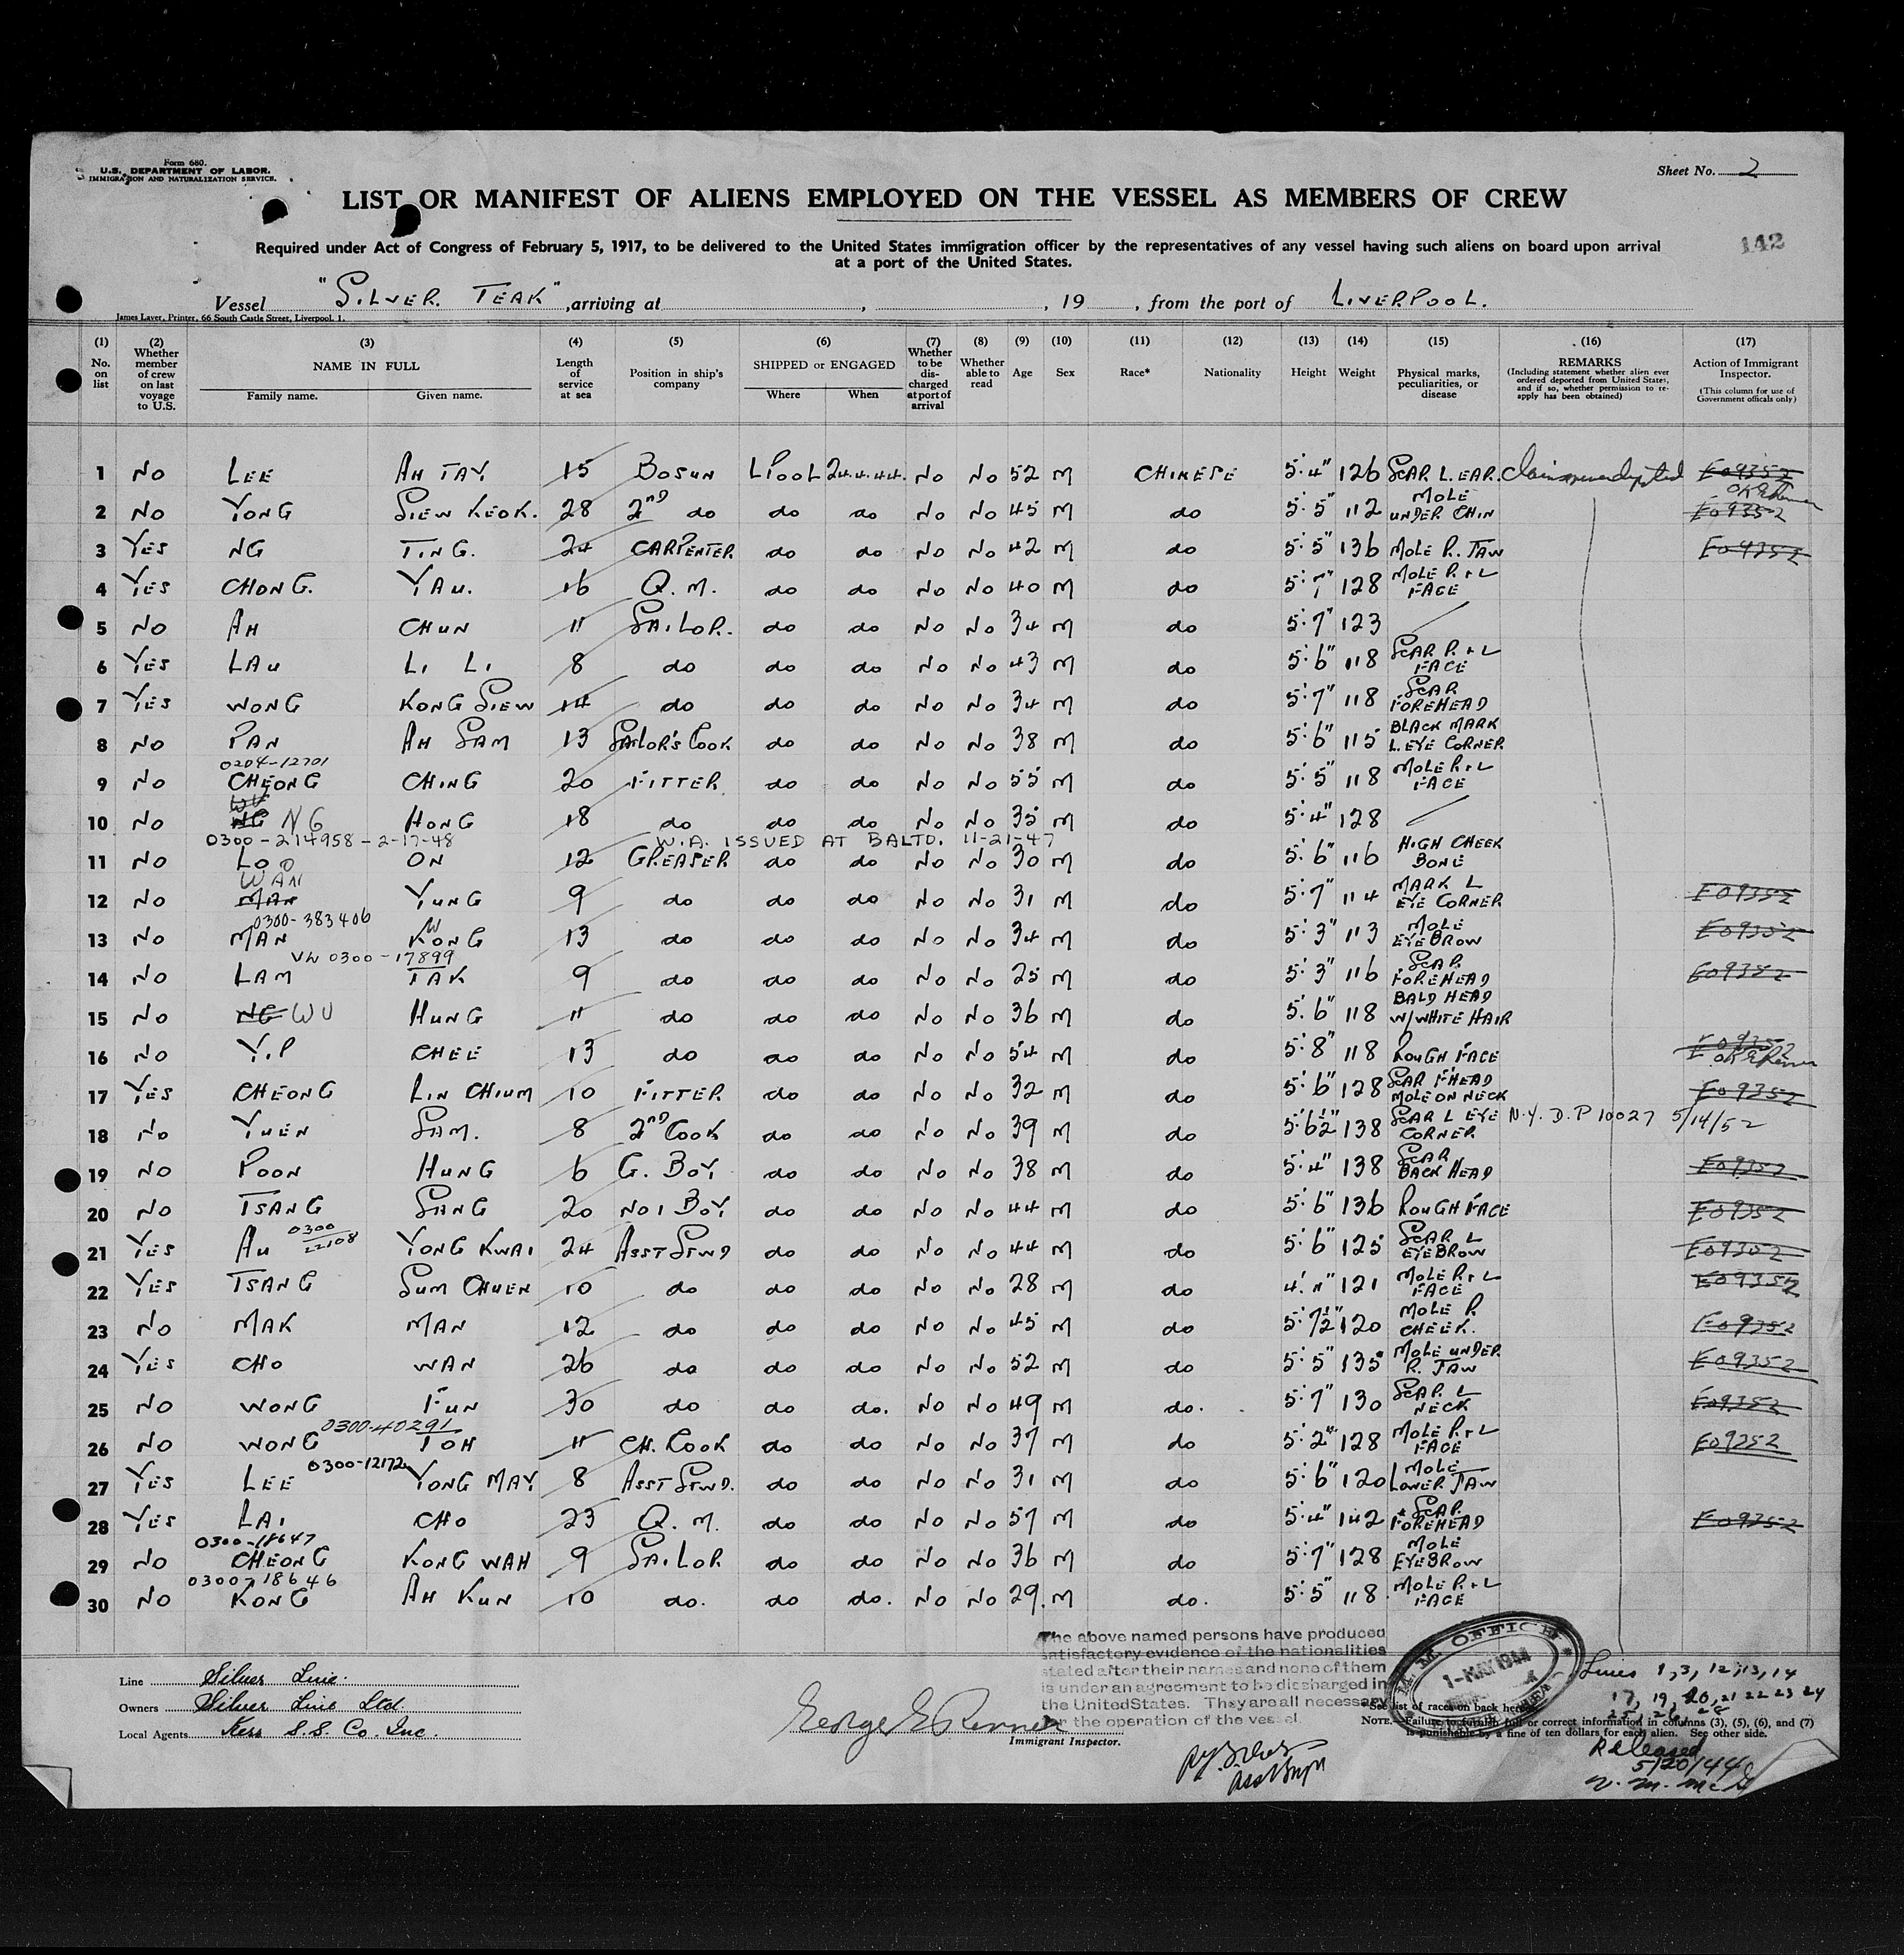 Form 680.
U.S. DEPARTMENT OF LABOR.
IMMIGRATION AND NATURALIZATION SERVICE.
Sheet No. 2
LIST OR MANIFEST OF ALIENS EMPLOYED ON THE VESSEL AS MEMBERS OF CREW
Required under Act of Congress of February 5, 1917, to be delivered to the United States immigration officer by the representatives of any vessel having such aliens on board upon arrival
at a port of the United States.
142
Vessel "SILVER TEAK", arriving at , , 19 , from the port of LIVERPOOL.
James Laver, Printer, 66 South Castle Street, Liverpool, 1.
(1) No. on list (2) Whether member of crew on last voyage to U.S. (3) NAME IN FULL Family name. Given name. (4) Length of service at sea (5) Position in ship's company (6) SHIPPED or ENGAGED Where When (7) Whether to be discharged at port of arrival (8) Whether able to read (9) Age (10) Sex (11) Race* (12) Nationality (13) Height (14) Weight (15) Physical marks, peculiarities, or disease (16) REMARKS (Including statement whether alien ever ordered deported from United States, and if so, whether permission to re-apply has been obtained) (17) Action of Immigrant Inspector. (This column for use of Government officals only)
1 NO LEE AH TAY. 15 BOSUN L'POOL 24.4.44. NO NO 52 M CHINESE 5'.4" 126 SCAR L. EAR. Claims never deported E09352
OK
2 NO YONG SIEW KEOK. 28 2ND do do do NO NO 45 M do 5'.5" 112 MOLE UNDER CHIN E09352
3 YES NG TING. 24 CARPENTER do do NO NO 42 M do 5'.5" 136 MOLE R. JAW E09352
4 YES CHONG. YAU. 16 Q.M. do do NO NO 40 M do 5'.7" 128 MOLE R. + L FACE
5 NO AH CHUN 11 SAILOR. do do NO NO 34 M do 5'.7" 123
6 YES LAU LI LI 8 do do do NO NO 43 M do 5'.6" 118 SCAR R. + L FACE
7 YES WONG KONG SIEW 14 do do do NO NO 34 M do 5'.7" 118 SCAR FOREHEAD
8 NO PAN AH SAM 13 SAILOR'S COOK do do NO NO 38 M do 5'.6" 115 BLACK MARK L. EYE CORNER
0204-12701
9 NO CHEONG CHING 20 FITTER do do NO NO 55 M do 5'.5" 118 MOLE R. + L FACE
WU
10 NO NG NG HONG 18 do do do NO NO 35 M do 5'.4" 128
0300-214958-2-17-48 W.A. ISSUED AT BALTO. 11-21-47
11 NO LOO ON 12 GREASER do do NO NO 30 M do 5'.6" 116 HIGH CHEEK BONE
WAN
12 NO MAN YUNG 9 do do do NO NO 31 M do 5'.7" 114 MARK L EYE CORNER E09352
0300-383406
13 NO MAN KONG 13 do do do NO NO 34 M do 5'.3" 113 MOLE EYEBROW E09352
0300-17899
14 NO LAM TAK 9 do do do NO NO 25 M do 5'.3" 116 SCAR FOREHEAD E09352
15 NO NG WU HUNG 11 do do do NO NO 36 M do 5'.6" 118 BALD HEAD W/WHITE HAIR
16 NO YIP CHEE 13 do do do NO NO 54 M do 5'.8" 118 ROUGH FACE E09352
OK
17 YES CHEONG LIN CHIUM 10 FITTER do do NO NO 32 M do 5'.6" 128 SCAR F'HEAD MOLE ON NECK E09352
18 NO YUEN SAM. 8 2ND COOK do do NO NO 39 M do 5'.6½" 138 SCAR L EYE CORNER N.Y. D.P 10027 5/14/52
19 NO POON HUNG 6 G. BOY. do do NO NO 38 M do 5'.4" 138 SCAR BACK HEAD E09352
20 NO TSANG SANG 20 NO 1 BOY. do do NO NO 44 M do 5'.6" 136 ROUGH FACE E09352
21 YES AU 0300 22108 YONG KWAI 24 ASST STWD do do NO NO 44 M do 5'.6" 125 SCAR L EYEBROW E09352
22 YES TSANG SUM CHUEN 10 do do do NO NO 28 M do 4'.11" 121 MOLE R + L FACE E09352
23 NO MAK MAN 12 do do do NO NO 45 M do 5'.7½" 120 MOLE R. CHEEK. E09352
24 YES CHO WAN 26 do do do NO NO 52 M do 5'.5" 135 MOLE UNDER R. JAW E09352
25 NO WONG FUN 30 do do do. NO NO 49 M do. 5'.7" 130 SCAR L NECK E09352
0300-40291
26 NO WONG TOH 11 CH. COOK do do NO NO 37 M do 5'.2" 128 MOLE R. + L FACE E09352
0300-12172
27 YES LEE YONG MAY 8 ASST STWD. do do NO NO 31 M do 5'.6" 120 MOLE LOWER JAW
28 YES LAI CHO 23 Q. M. do do NO NO 57 M do 5'.4" 142 SCAR FOREHEAD E09352
0300-18647
29 NO CHEONG KONG WAH 9 SAILOR do do NO NO 36 M do 5'.7" 128 MOLE EYEBROW
0300-18646
30 NO KONG AH KUN 10 do. do do. NO NO 29. M do. 5'.5" 118. MOLE R. + L FACE
The above named persons have produced
satisfactory evidence of the nationalities
stated after their names and none of them
is under an agreement to be discharged in
the United States. They are all necessary
for the operation of the vessel.
Line Silver Line.
Owners Silver Line Ltd.
Local Agents Kerr S.S. Co. Inc.
George E Renner
Immigrant Inspector.
OFFICE
1-MAY 1944
Lines 1, 3, 12, 13, 14
17, 19, 20, 21 22 23 24
25, 26, 28
*See list of races on back hereof.
NOTE.—Failure to furnish full or correct information in columns (3), (5), (6), and (7)
is punishable by a fine of ten dollars for each alien. See other side.
Released
5/20/44